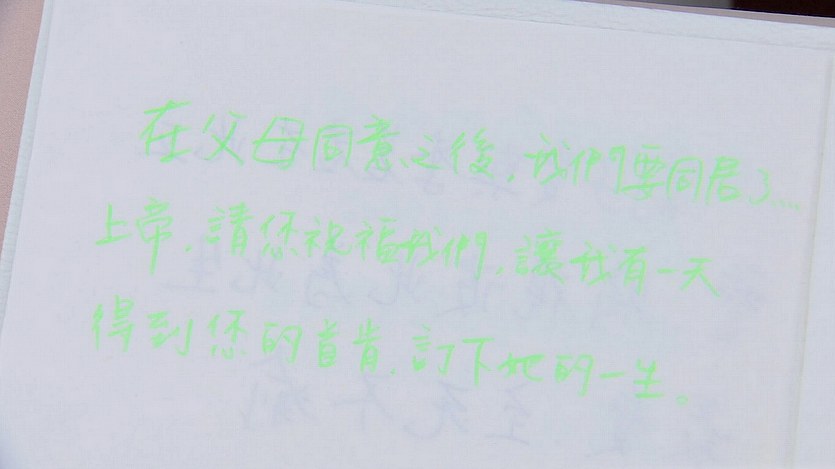 在父母同意之後,我們要同居了...
上帝,請您祝福我們,讓我有一天
得到您的首肯,訂下她的一生。